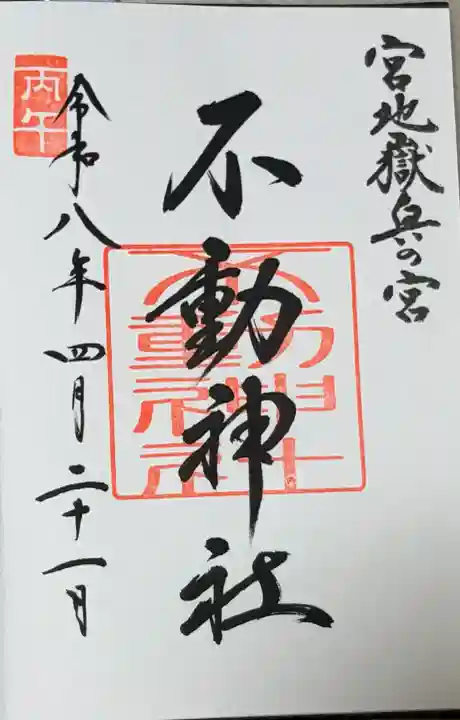 宮地嶽奥の宮
不動神社
不動神社
丙午
令和八年四月二十一日